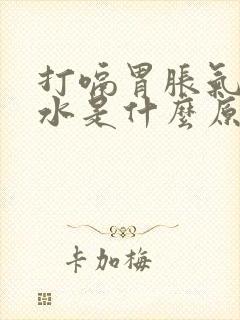 打嗝胃脹氣
水是什麼原
卡加梅